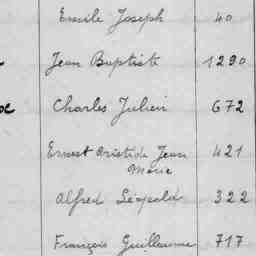 Emile Joseph 40
Jean Baptiste 1290
Charles Julien 672
Ernest Aristide Jean 421
Marie
Alfred Léopold 322
François Guillaume 717